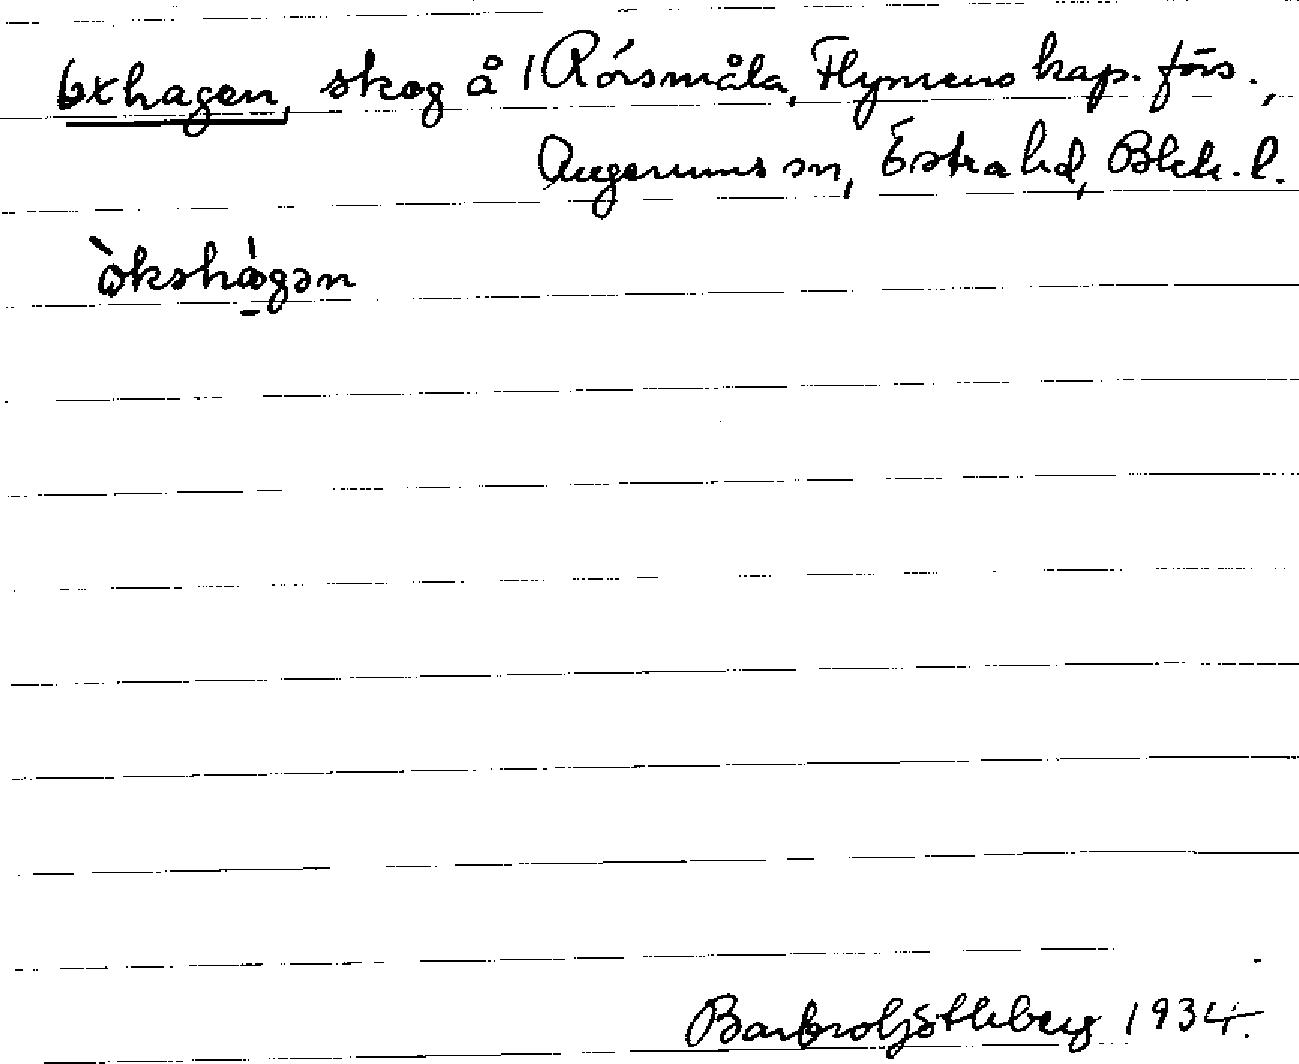 Oxhagen, skog å 1 Rörsmåla, Flymens kap. förs.,
Augerums sn, Östra hd, Blek. l.
òkshágən
Barbro Göthberg 1934.